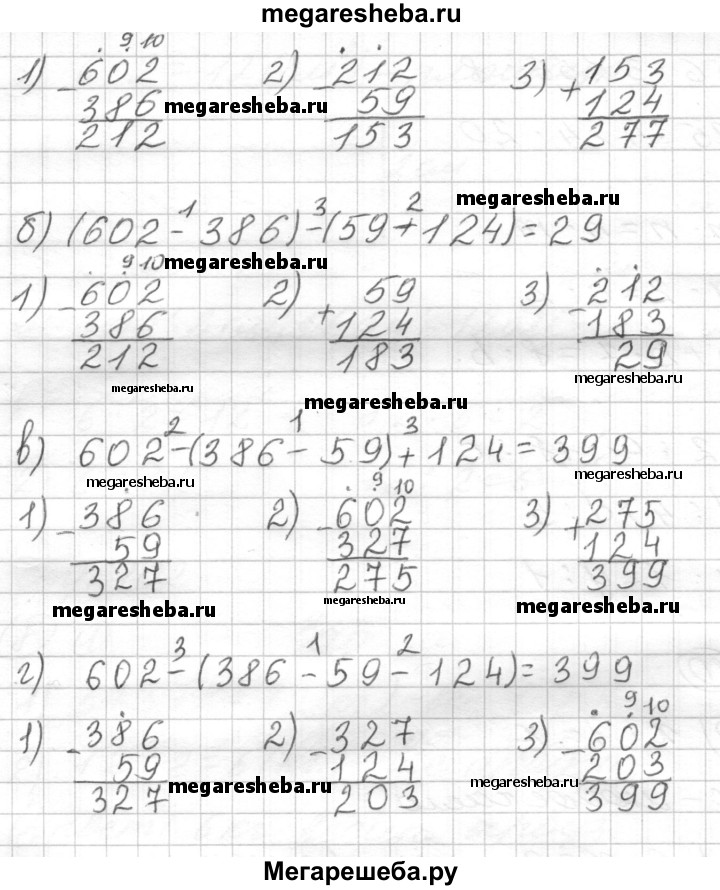 megaresheba.ru
9 10
1) - 602 2) - 212 3) + 153
386 59 124
megaresheba.ru
212 153 277
megaresheba.ru
1 3 2
б) (602 - 386) - (59 + 124) = 29
megaresheba.ru
9 10
1) - 602 2) + 59 3) - 212
386 124 183
212 183 29
megaresheba.ru
megaresheba.ru
megaresheba.ru
2 1 3
в) 602 - (386 - 59) + 124 = 399
megaresheba.ru megaresheba.ru
9 10
1) - 386 2) - 602 3) + 275
59 327 124
327 275 399
megaresheba.ru megaresheba.ru megaresheba.ru
3 1 2
г) 602 - (386 - 59 - 124) = 399
9 10
1) - 386 2) - 327 3) - 602
59 124 203
megaresheba.ru megaresheba.ru
327 203 399
Мегарешеба.ру